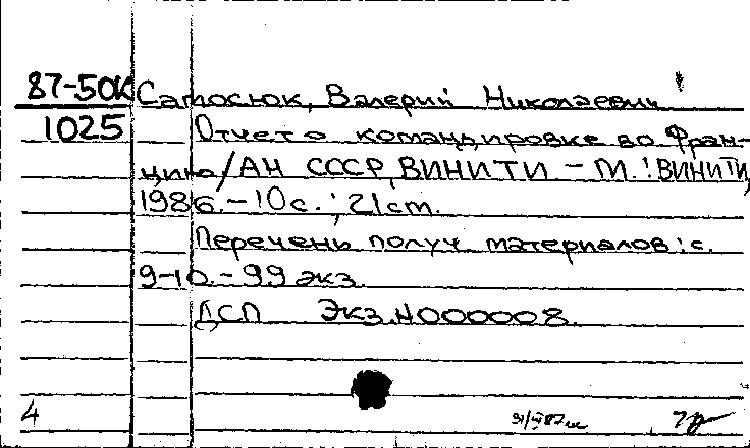 87-50К Сатосюк, Валерий Николаевич
1025 Отчет о командировке во Фран-
цию/АН СССР, ВИНИТИ - М.: ВИНИТИ,
1986.-10с.; 21ст.
Перечень получ материалов: с.
9-10.-99 экз.
ДСП Экз.N000008.
4